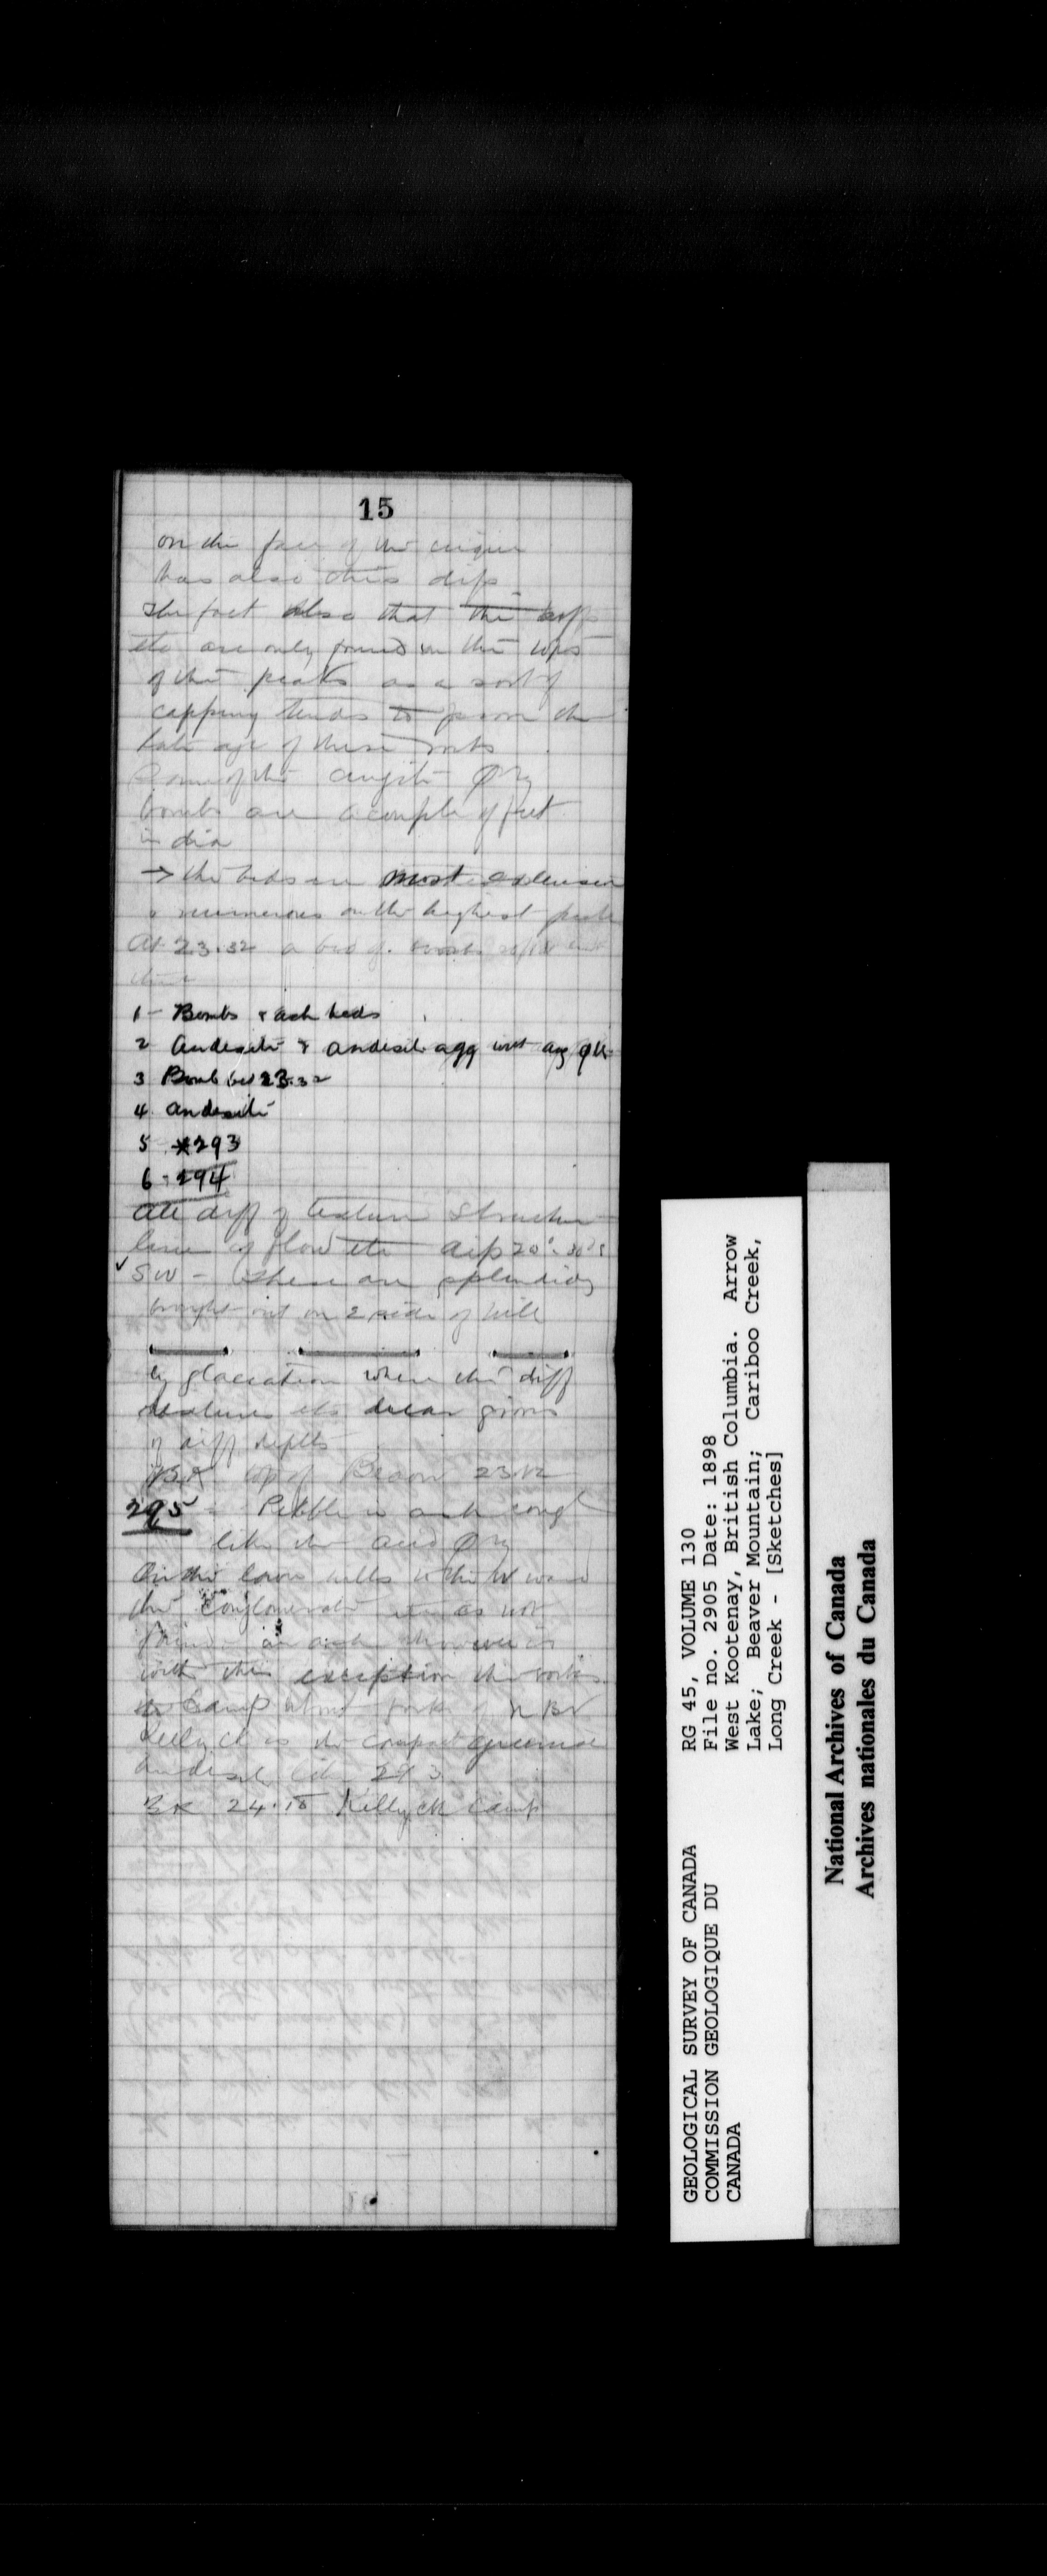 15
on the face of the cirque
has also this dip
The fact also that the tuffs
etc are only found on the tops
of the peaks as a sort of
capping tends to prove the
late age of these rocks
Some of the augite
bombs are a couple of feet
in dia
→ the beds are most extensive
& numerous on the highest peaks
At 23.32 a bed of bombs
1 - Bombs & ash beds
2 Andesite & andesite agg with aug
3 Bomb bed 23.32
4 andesite
5 *293
6 - 294
All diff of texture structure
lines of flow etc dip 20°-30°
SW - these are splendidly
brought out on 2 side of hill
by glaciation when the diff
textures etc wear grooves
of diff depths
top of Beaver 23.12
295 = Pebble in ash congl
like the aug
On the lower hills to the W
the conglomerate was not
found
with this exception the rocks
to Camp about forks of N Br
Kelly Ck is the compact
andesite like 293
24.15 Kelly Ck Camp
GEOLOGICAL SURVEY OF CANADA
COMMISSION GEOLOGIQUE DU
CANADA
RG 45, VOLUME 130
File no. 2905 Date: 1898
West Kootenay, British Columbia. Arrow
Lake; Beaver Mountain; Cariboo Creek,
Long Creek - [Sketches]
National Archives of Canada
Archives nationales du Canada